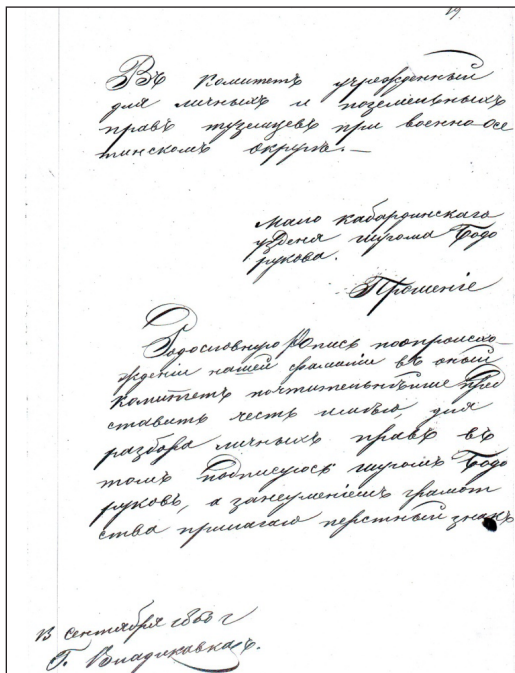 19.
Въ Комитетъ учрежденный
для личныхъ и поземельныхъ
правъ туземцевъ при военно осе
тинскомъ округѣ. —
Мало Кабардинскаго
узденя шугома Бодо
рукова.
Прошеніе
Родословную Опись попроисхо-
жденію нашей фамиліи въ оный
комитетъ почтительнѣйше пред
ставить честь имѣю, для
разбора личныхъ правъ въ
томъ подписуюсь шугомъ Бодо
руковъ, а занеуменіемъ грамот
ства прилагаю перстный знакъ
13 сентября г
Г. Владикавказъ.